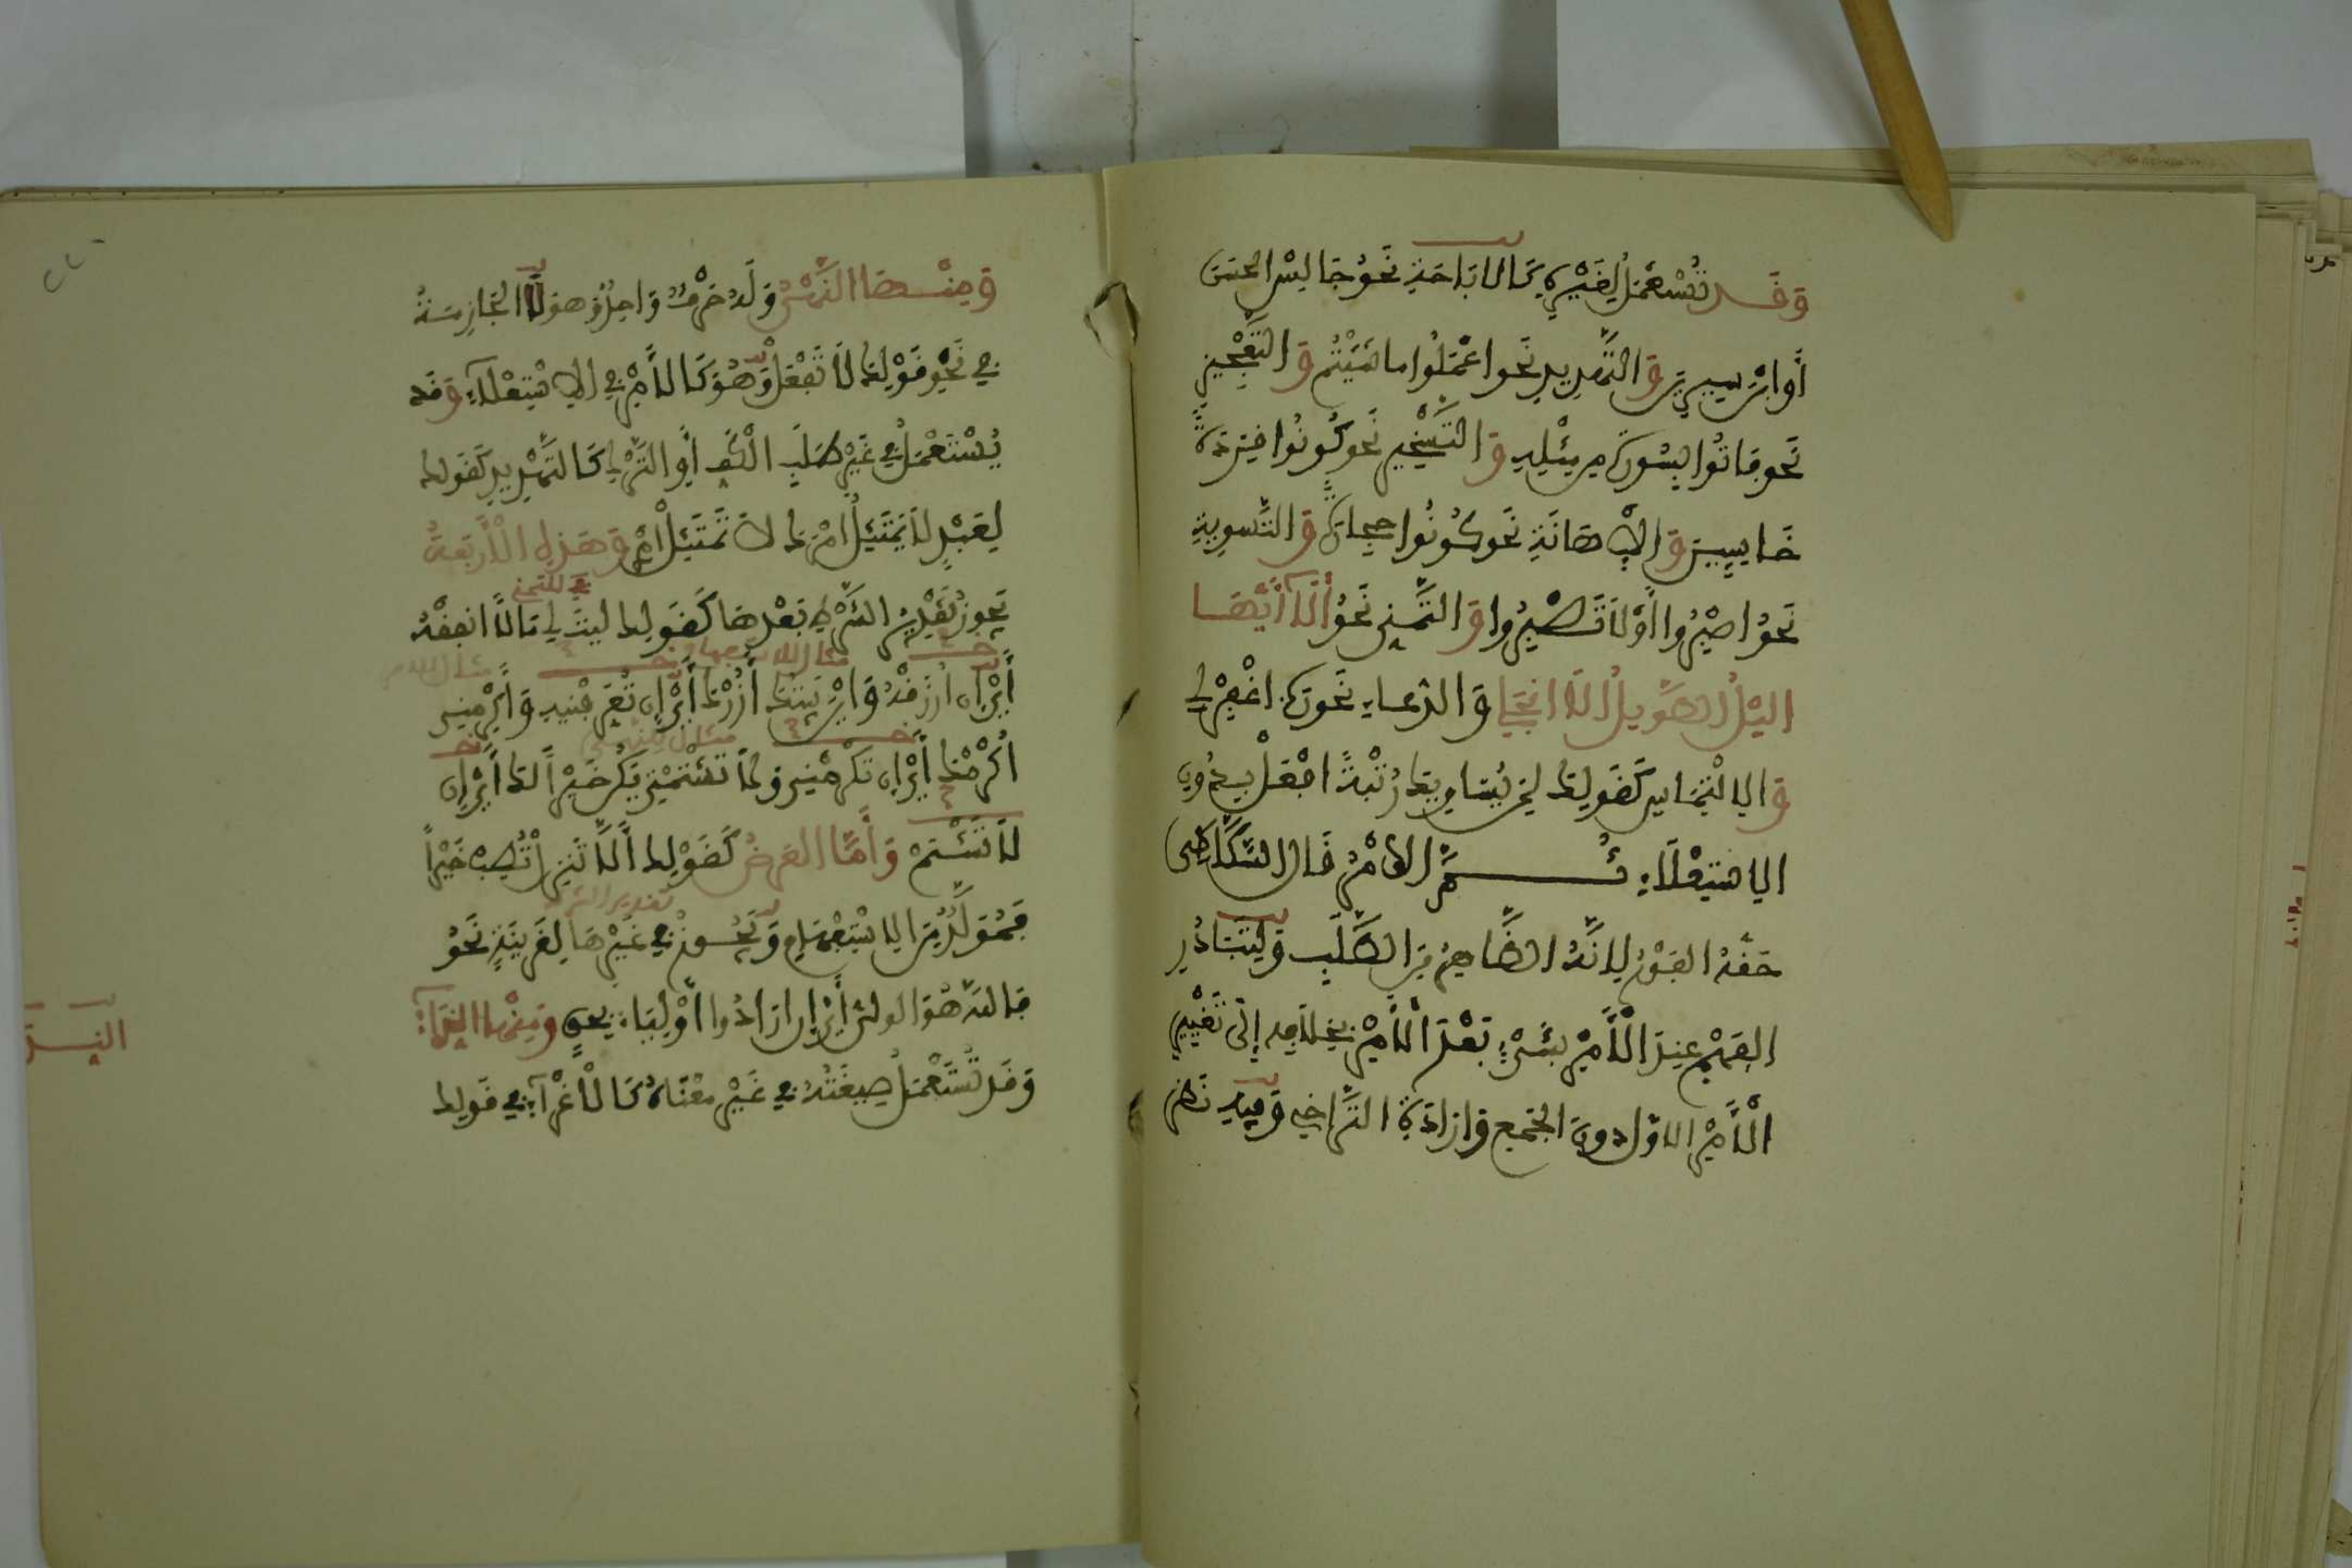 وَقَد تُسْتَعْمَلُ لِغَيْرِهِ كَالابَاحَةِ نَحْوُ جَالِسِ الحَسَنَ
أَوِ ابْنَ سِيرِينَ وَالتَّهْدِيدِ نَحو اعْمَلُوا ما شِئْتُم وَ التَّعْجِيزِ
نَحو فَاتُوا بِسُورَة مِن مِثْلِهِ وَ التَّسْخِيرِ نَحو كُونُوا قِرَدَةً
خَاسِيِينَ وَ الاِهَانَةِ نَحو كُونُوا حِجارَةً وَ التَّسوِيَةِ
نَحْوُ اصْبِرُوا أَوْ لاَ تَصْبِرُوا وَ التَّمَنِّي نَحْوُ أَلاَ أَيُّهَا
اليْلُ الطَّوِيلُ أَلاَ انْجَلِي وَ الدُّعَاءِ نَحو رَبِّ اغْفِرْ لِي
وَ الاِلْتِمَاسِ كَقَولِكَ لِمَن يُسَاوِيكَ رُتْبَةً افْعَلْ بِدُونِ
الاِسْتِعْلاَءِ ثُمَّ الأَمْرُ قَالَ السَّكَّاكِي
حَقُّهُ الفَوْرُ لِأَنَّهُ الظَّاهِرُ مِنَ الطَّلَبِ وَلِتَبَادُرِ
الفَهْمِ عِندَ الْأَمْرِ بِشَيْءٍ بَعْدَ الْأَمْرِ بِخِلَافِهِ إلَى تَغْيِيرِ
الْأَمْرِ الأَوَّلِ دُونَ الجَمْعِ وَإِرَادَةِ التَّرَاخِي وَفِيهِ نَظَر
وَمِنْهَا النَّهْيُ وَلَهُ حَرْفٌ وَاحِدٌ وَهو لاَ الجَازِمَةُ
فِي نَحْوِ قَوْلِكَ لاَ تَفْعَلْ وَهُوَ كَالأَمْرِ فِي الاِسْتِعْلاَءِ وَقَد
يُسْتَعْمَلُ فِي غَيْرِ طَلَبِ الْكَفِّ أَوِ التَّرْكِ كَالتَّهْدِيدِ كَقَولِكَ
لِعَبْدٍ لاَ يَمْتَثِلُ أَمْرَكَ لاَ تَمْتَثِلْ أَمْرِي وَهَذِهِ الأَرْبَعَةُ
للتمني
يَجُوزُ تَقْدِيرُ الشَّرْطِ بَعْدَهَا كَقَولِكَ لَيْتَ لِي مَالاً انفِقْهُ
مثال الاستفهام
مثال الامر
أَيْ إِن أُرْزَقْهُ وَأَيْنَ بَيْتُكَ أَزُرْكَ أَيْ إِن تُعَرِّفْنِيهِ وَأَكْرِمْنِي
مثال النهي
أُكْرِمْكَ أَيْ إِن تُكْرِمْنِي وَلاَ تَشْتِمْنِي يَكُن خَيْراً لَكَ أَيْ إِن
لاَ تَشْتِمْ وَأَمَّا العَرْضُ كَقَوْلِكَ أَلاَ تَنزِلْ تُصِبْ خَيْراً
تقدير الشرط
فَمُوَلَّدٌ مِنَ الاِسْتِفْهَامِ وَيَجُوزُ فِي غَيْرِهَا لِقَرِينَةٍ نَحْوُ
فَاللَّهُ هُوَ الوَلِيُّ أَيْ إِن ارَادُوا أَوْلِيَاءَ بِحَقٍّ وَمِنْهَا النِّدَاءُ
وَقَد تُسْتَعْمَلُ صِيغَتُهُ فِي غَيْرِ مَعْنَاهُ كَالْأغْرَاءِ فِي قَولِكَ